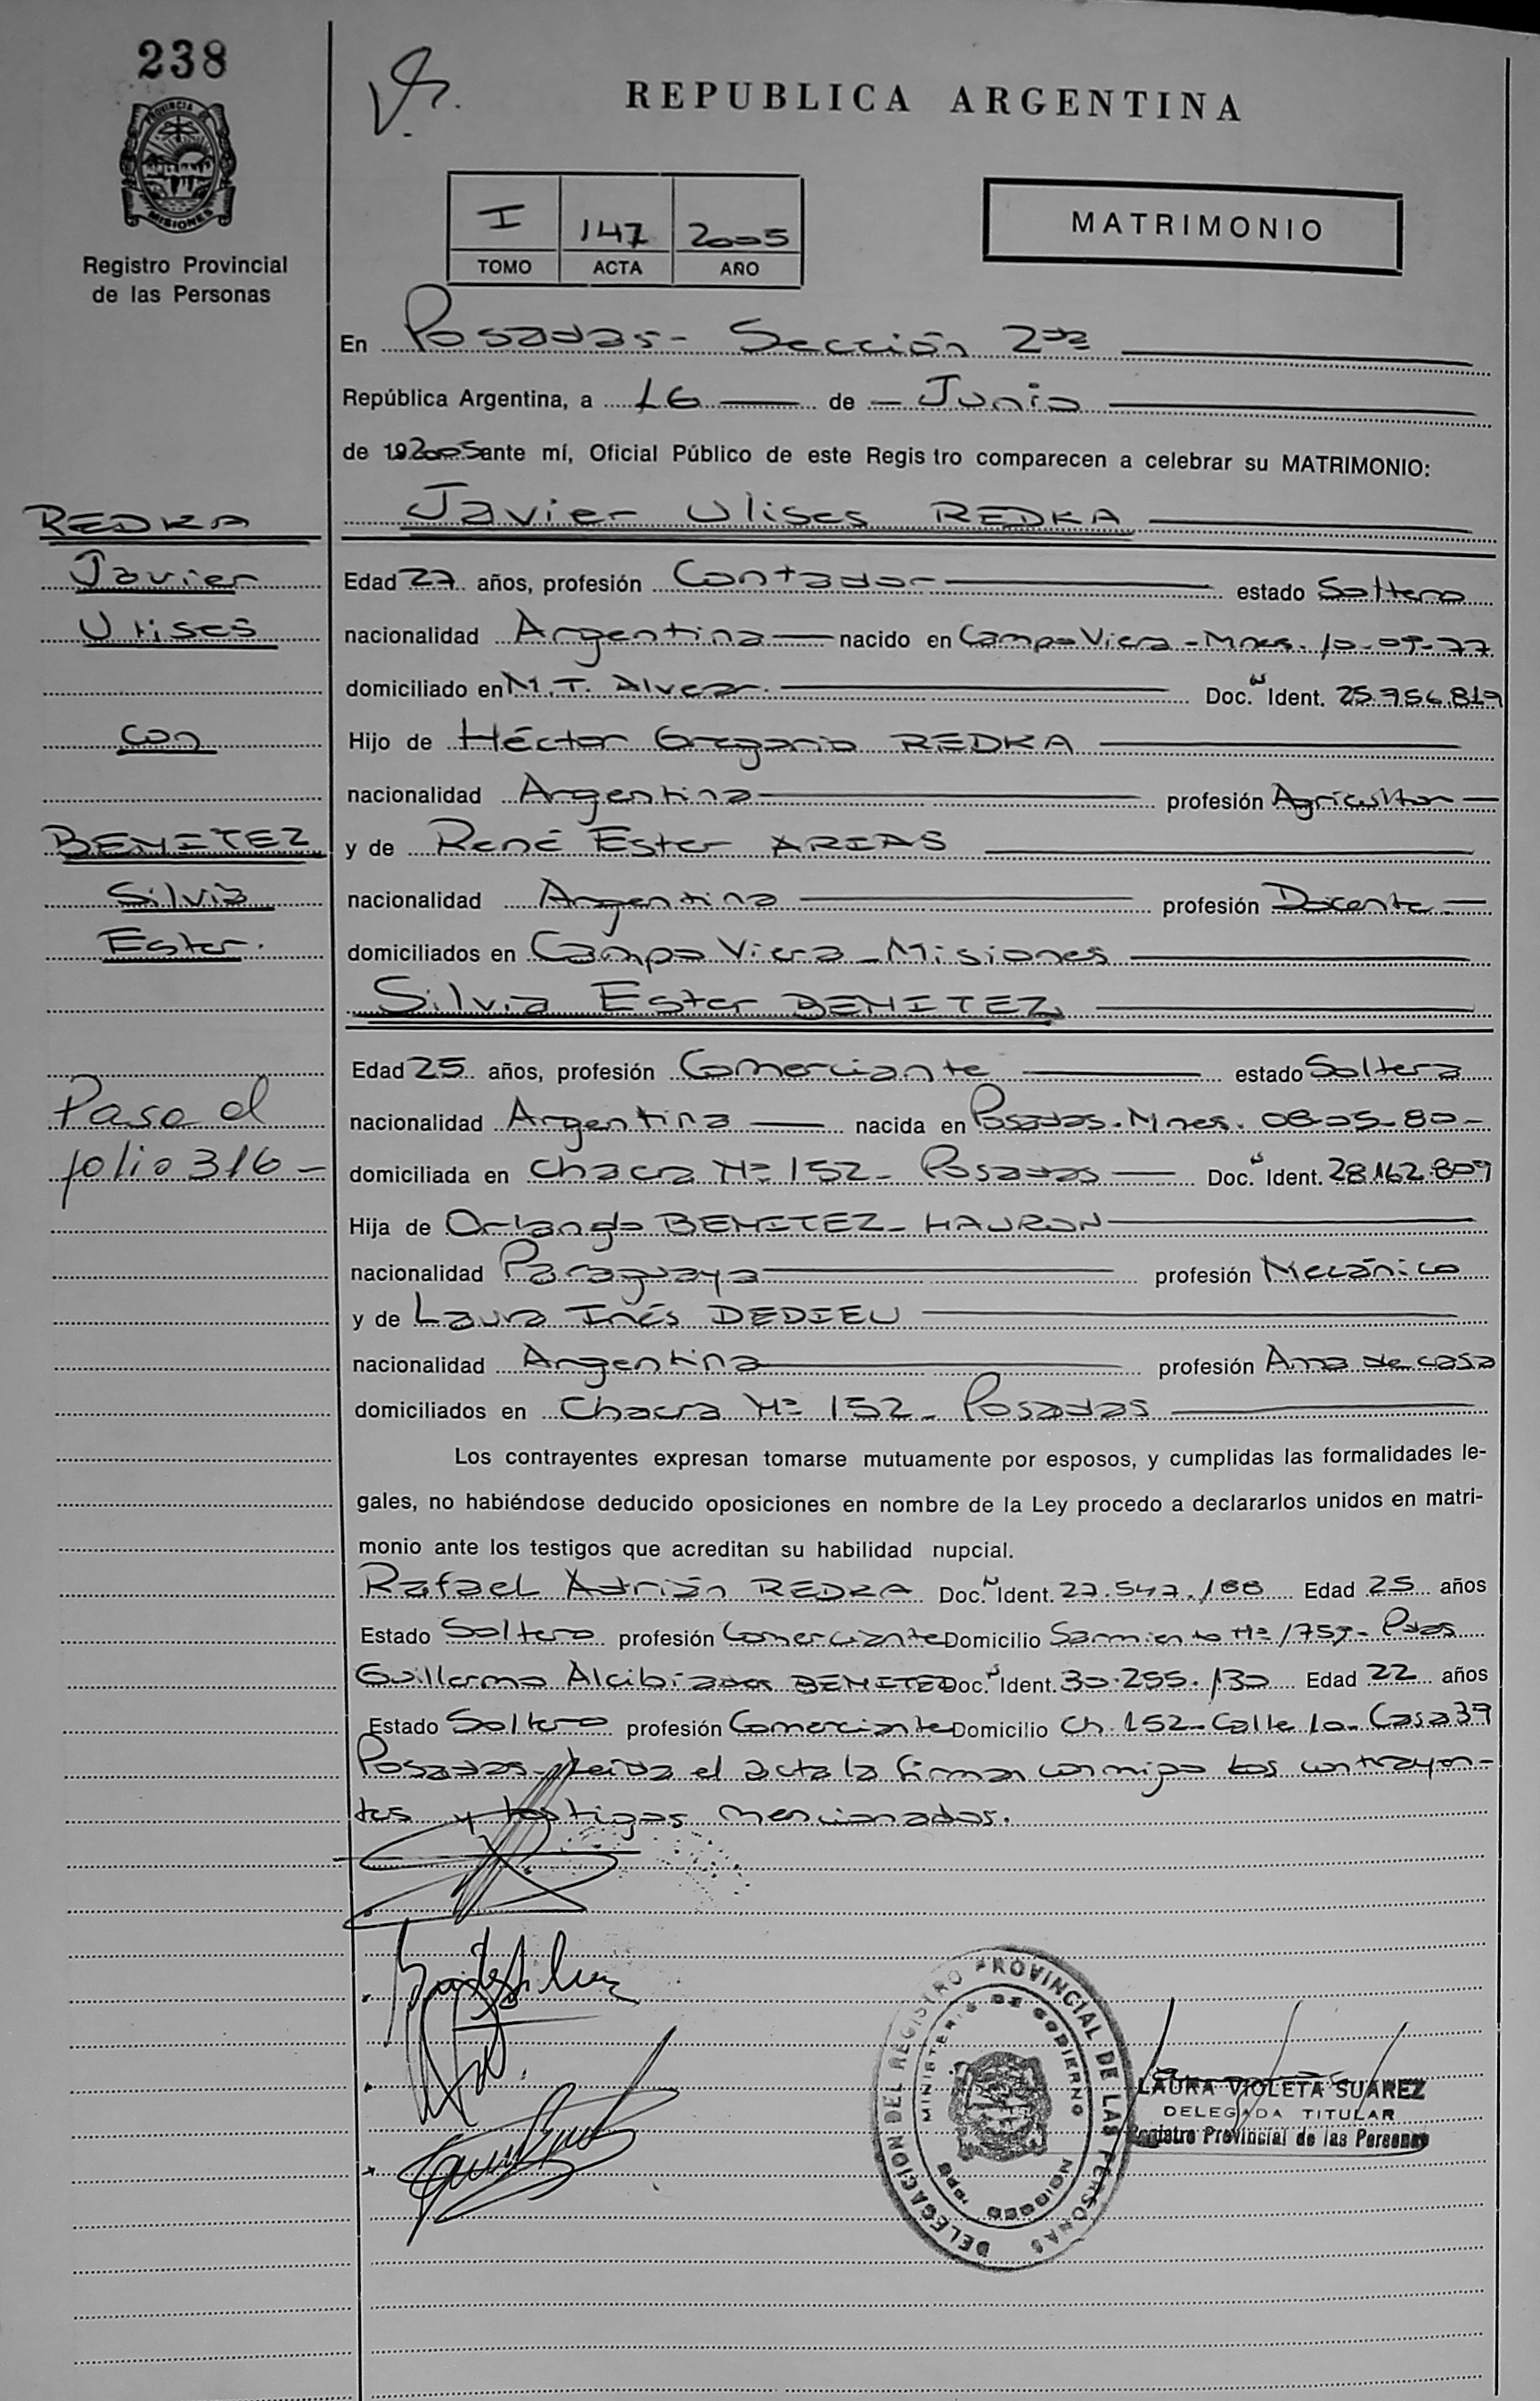 238
PROVINCIA DE
MISIONES
Registro Provincial
de las Personas
REPUBLICA ARGENTINA
I 147 2005
TOMO ACTA AÑO
MATRIMONIO
En Posadas - Sección 2da
República Argentina, a 16 de Junio
de 192005 ante mí, Oficial Público de este Registro comparecen a celebrar su MATRIMONIO:
REDKA
Javier
Ulises
con
BENITEZ
Silvia
Ester.
Pasa al
folio 316 -
Javier Ulises REDKA
Edad 27 años, profesión Contador estado Soltero
nacionalidad Argentina nacido en Campo Viera - Mnes. 10-09-77
domiciliado en M. T. Alvear. Doc. Ident. 25.956.819
Hijo de Héctor Gregorio REDKA
nacionalidad Argentina profesión Agricultor
y de René Ester ARIAS
nacionalidad Argentina profesión Docente
domiciliados en Campo Viera - Misiones
Silvia Ester BENITEZ
Edad 25 años, profesión Comerciante estado Soltera
nacionalidad Argentina nacida en Posadas. Mnes. 08-05-80-
domiciliada en Chacra Nº 152 - Posadas Doc. Ident. 28.162.809
Hija de Orlando BENITEZ - HAURON
nacionalidad Paraguaya profesión Mecánico
y de Laura Inés DEDIEU
nacionalidad Argentina profesión Ama de casa
domiciliados en Chacra Nº 152 - Posadas
Los contrayentes expresan tomarse mutuamente por esposos, y cumplidas las formalidades le-
gales, no habiéndose deducido oposiciones en nombre de la Ley procedo a declararlos unidos en matri-
monio ante los testigos que acreditan su habilidad nupcial.
Rafael Adrián REDKA Doc. Ident. 27.547.188 Edad 25 años
Estado Soltero profesión Comerciante Domicilio Sarmiento Nº 1759 - Pdas
Guillermo Alcibiades BENITEZ Doc. Ident. 30.255.130 Edad 22 años
Estado Soltero profesión Comerciante Domicilio Ch. 152 - Calle 10 - Casa 39
Posadas - Leida el acta la firman conmigo los contrayen-
tes y testigos mencionados.
DELEGACION DEL REGISTRO PROVINCIAL DE LAS PERSONAS
MINISTERIO DE GOBIERNO
LAURA VIOLETA SUAREZ
DELEGADA TITULAR
Registro Provincial de las Personas